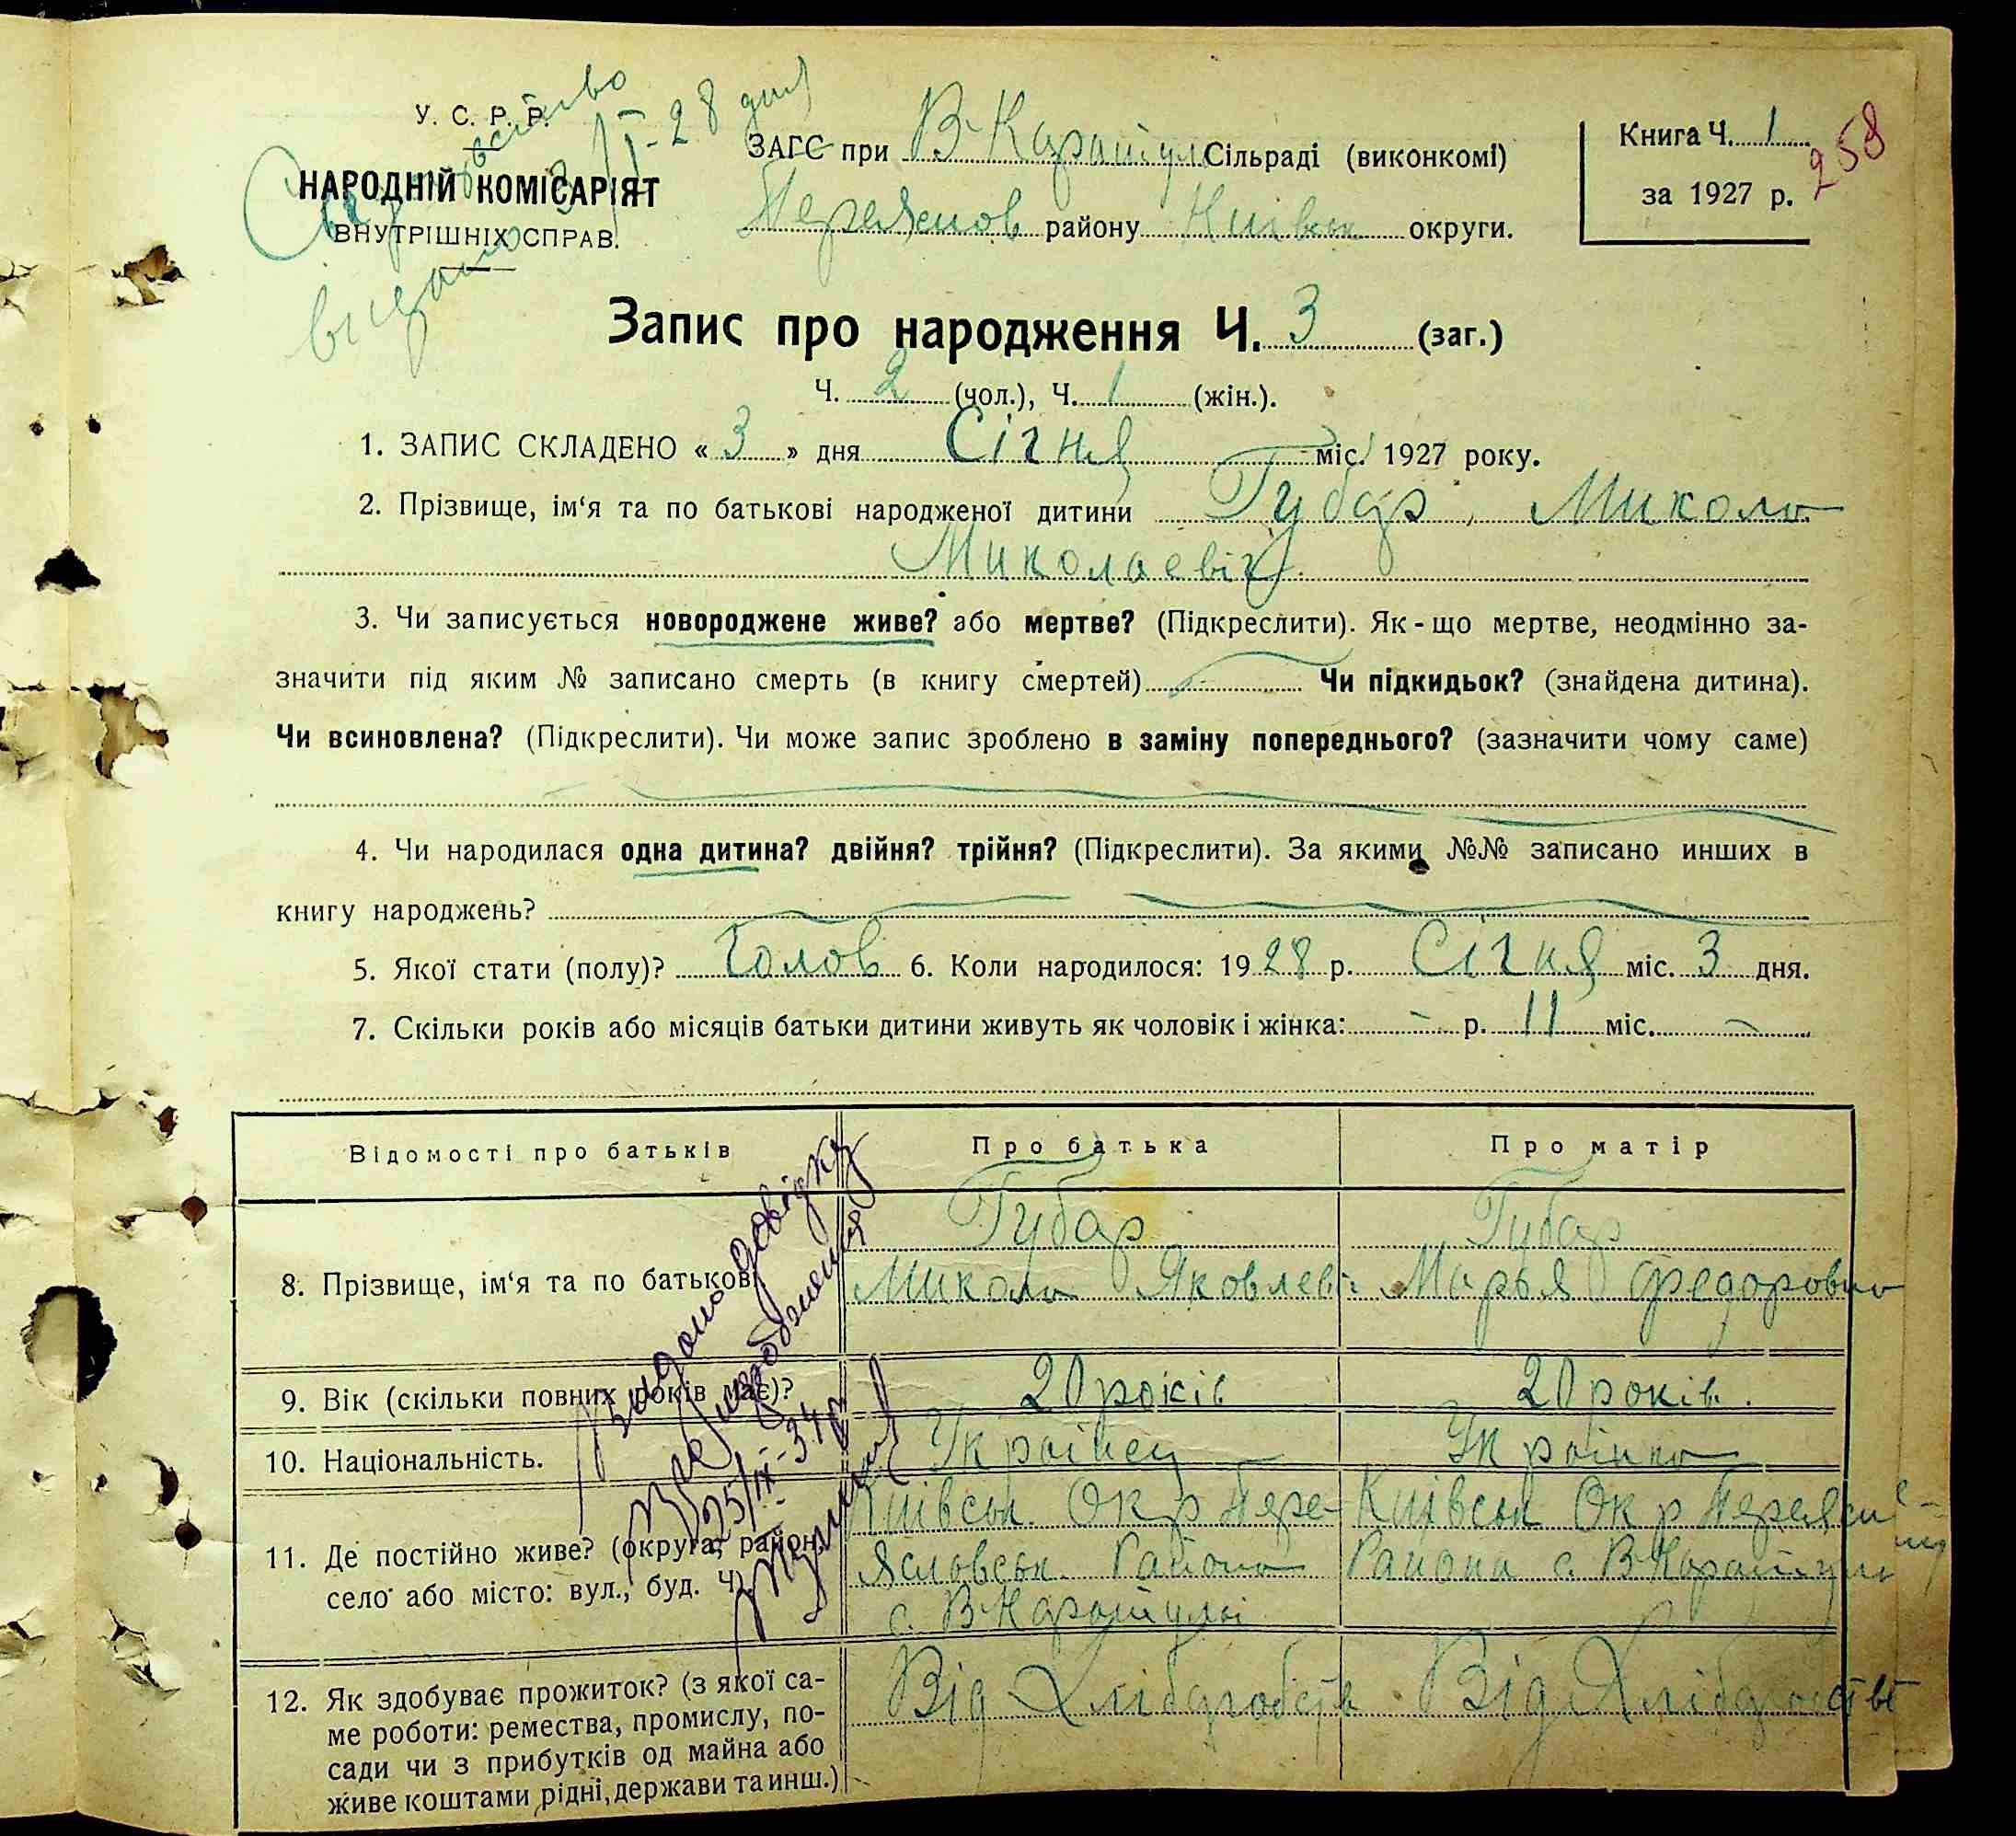 У. С. Р. Р.
НАРОДНІЙ КОМІСАРІЯТ
ВНУТРІШНІХ СПРАВ.
Свідоцтво
видано 3/I-28 дня
ЗАГС при В-Каратул Сільраді (виконкомі)
Переяслов району Київськ округи.
Книга Ч. 1
за 1927 р.
258
Запис про народження Ч. 3 (заг.)
Ч. 2 (чол.), Ч. 1 (жін.).
1. ЗАПИС СКЛАДЕНО « 3 » дня Січня міс. 1927 року.
2. Прізвище, ім‘я та по батькові народженої дитини Губар, Микола
Миколаевіч.
3. Чи записується новороджене живе? або мертве? (Підкреслити). Як-що мертве, неодмінно за-
значити під яким № записано смерть (в книгу смертей) Чи підкидьок? (знайдена дитина).
Чи всиновлена? (Підкреслити). Чи може запис зроблено в заміну попереднього? (зазначити чому саме)
4. Чи народилася одна дитина? двійня? трійня? (Підкреслити). За якими №№ записано инших в
книгу народжень?
5. Якої стати (полу)? Чолов 6. Коли народилося: 1928 р. Січня міс. 3 дня.
7. Скільки років або місяців батьки дитини живуть як чоловік і жінка: - р. 11 міс.
Відомості про батьків Про батька Про матір
Губар Губар
8. Прізвище, ім‘я та по батькові Микола Яковлев Марья Федоровна
9. Вік (скільки повних років має)? 20 років 20 років.
10. Національність. Українец Українка
Видано довідку
25/IX-34 р
Київськ Окр Пере- Київськ Окр Переясл
11. Де постійно живе? (округа, район, Ясловськ Району Района с. В Каратул
село або місто: вул., буд. Ч.) с. В-Каратулі
12. Як здобуває прожиток? (з якої са- Від Хліборобств Від Хліборобств
ме роботи: ремества, промислу, по-
сади чи з прибутків од майна або
живе коштами рідні, держави та инш.)